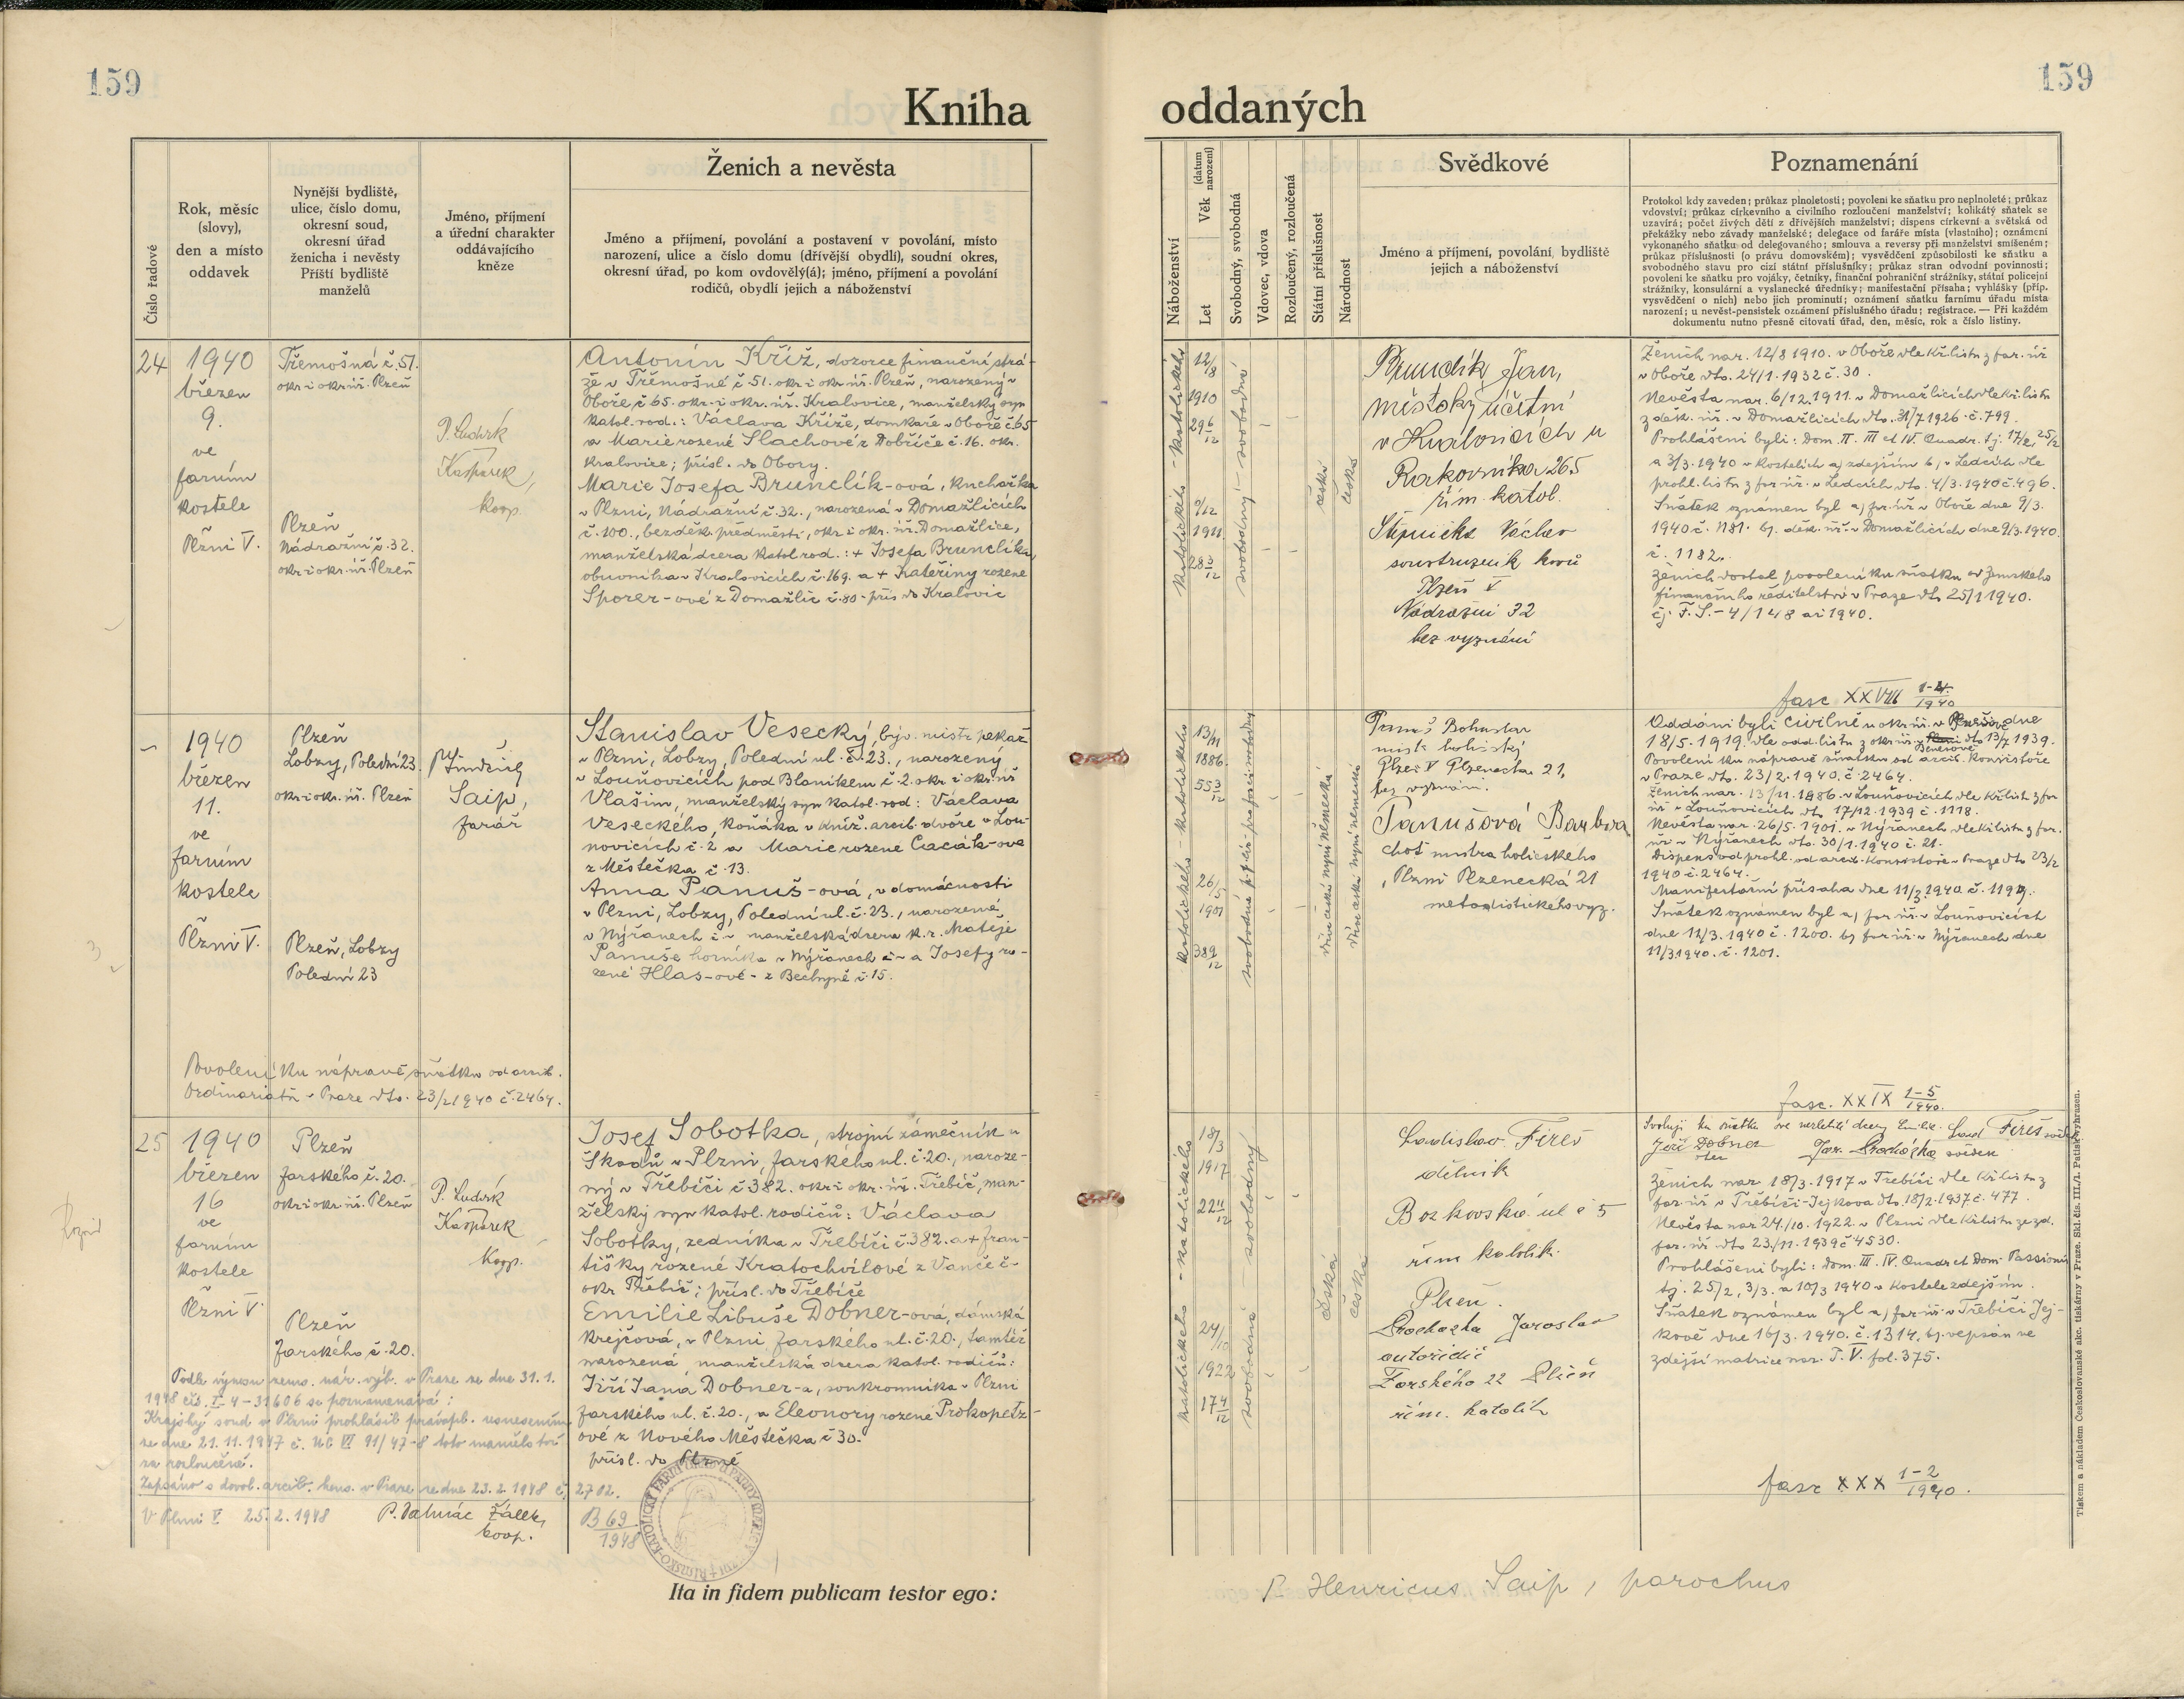 159
159
Kniha
oddaných
Číslo řadové
Rok, měsíc
(slovy),
den a místo
oddavek
Nynější bydliště,
ulice, číslo domu,
okresní soud,
okresní úřad
ženicha i nevěsty
Příští bydliště
manželů
Jméno, příjmení
a úřední charakter
oddávajícího
kněze
Ženich a nevěsta
Jméno a příjmení, povolání a postavení v povolání, místo
narození, ulice a číslo domu (dřívější obydlí), soudní okres,
okresní úřad, po kom ovdovělý(á); jméno, příjmení a povolání
rodičů, obydlí jejich a náboženství
Náboženství
Věk (datum narození)
Let
Svobodný, svobodná
Vdovec, vdova
Rozloučený, rozloučená
Státní příslušnost
Národnost
Svědkové
Jméno a příjmení, povolání, bydliště
jejich a náboženství
Poznamenání
Protokol kdy zaveden; průkaz plnoletosti; povolení ke sňatku pro neplnoleté; průkaz
vdovství; průkaz církevního a civilního rozloučení manželství; kolikátý sňatek se
uzavírá; počet živých dětí z dřívějších manželství; dispens církevní a světská od
překážky nebo závady manželské; delegace od faráře místa (vlastního); oznámení
vykonaného sňatku od delegovaného; smlouva a reversy při manželství smíšeném;
průkaz příslušnosti (o právu domovském); vysvědčení způsobilosti ke sňatku a
svobodného stavu pro cizí státní příslušníky; průkaz stran odvodní povinnosti;
povolení ke sňatku pro vojáky, četníky, finanční pohraniční strážníky, státní policejní
strážníky, konsulární a vyslanecké úředníky; manifestační přísaha; vyhlášky (příp.
vysvědčení o nich) nebo jich prominutí; oznámení sňatku farnímu úřadu místa
narození; u nevěst-pensistek oznámení příslušného úřadu; registrace. — Při každém
dokumentu nutno přesně citovati úřad, den, měsíc, rok a číslo listiny.
24
1940
březen
9.
ve
farním
kostele
Plzni V.
Třemošná č. 51.
okr. i okr. úř. Plzeň
Plzeň
Nádražní č. 32.
okr. i okr. úř. Plzeň
P. Luděk
Kašpárek,
koop.
Antonín Kříž, dozorce finanční strá-
že v Třemošné č. 51. okr. i okr. úř. Plzeň, narozený v
Oboře č. 65. okr. i okr. úř. Kralovice, manželský syn
katol. rod.: Václava Kříže, domkaře v Oboře č. 65
a Marie rozené Slachové z Dobříče č. 16. okr.
Kralovice; přísl. do Obory.
Marie Josefa Brunclík-ová, kuchařka
v Plzni, Nádražní č. 32., narozená v Domažlicích
č. 100., bezděk. předměstí, okr. i okr. úř. Domažlice,
manželská dcera katol. rod.: + Josefa Brunclíka,
obuvníka v Kralovicích č. 169. a + Kateřiny rozené
Sporer-ové z Domažlic č. 80 - přís. do Kralovic
katolického - katolického
12/8
1910
29 6/12
6/12
1911
28 3/12
svobodný - svobodná
česká
česká
Brunclík Jan,
městský účetní
v Kralovicích u
Rakovníka 265
řím. katol.
Václav
soustružník kovů
Plzeň V
Nádražní 32
bez vyznání
Ženich nar. 12/8 1910. v Oboře dle kř. listu z far. úř.
v Oboře dto. 24/1. 1932 č. 30.
Nevěsta nar. 6/12. 1911. v Domažlicích dle kř. listu
z děk. úř. v Domažlicích dto. 31/7 1926 č. 799.
Prohlášeni byli: Dom. II. III et IV. Quadr. tj. 17/2, 25/2
a 3/3. 1940 v kostelích a) zdejším b) v Ledcích dle
prohl. listu z far. úř. v Ledcích dto. 4/3. 1940 č. 496.
Sňatek oznámen byl a) far. úř. v Oboře dne 9/3.
1940 č. 1181. b) děk. úř. v Domažlicích dne 9/3. 1940.
č. 1182.
Ženich dostal povolení ku sňatku od Zemského
finančního ředitelství v Praze dto 25/1 1940.
čj. F. S. - 4/148 ai 1940.
fasc XXVIII 1-4/1940
1940
březen
11.
ve
farním
kostele
Plzni V.
Plzeň
Lobzy, Polední 23
okr. i okr. úř. Plzeň
Plzeň, Lobzy
Polední 23
P. Jindřich
Saip,
farář
Stanislav Vesecký, býv. mistr pekař
v Plzni, Lobzy, Polední ul. č. 23., narozený
v Louňovicích pod Blaníkem č. 2. okr. i okr. úř.
Vlašim, manželský syn katol. rod: Václava
Veseckého, koňáka v kníž. arcib. dvoře v Lou-
novicích č. 2 a Marie rozené Cacák-ové
z Městečka č. 13.
Anna Panuš-ová, v domácnosti
v Plzni, Lobzy, Polední ul. č. 23., narozená
v Nýřanech č - manželská dcera k. r. Matěje
Panuše horníka v Nýřanech č - a Josefy ro-
zené Hlas-ové - z Bechyně č. 15.
Povolení ku nápravě sňatku od arcib.
Ordinariátu v Praze dto. 23/2 1940 č. 2464.
katolického - katolického
13/11
1886
55 3/12
26/5
1901
38 9/12
německá nyní německá
Panuš Bohuslav
mistr holičský
Plzeň V Plzenecká 21,
bez vyznání.
Panušová Barbora
choť mistra holičského
, Plzni Plzenecká 21
metodistického vyz.
Oddáni byli civilně u okr. úř. v Benešově dne
18/5. 1919. dle odd. listu z okr. úř. v Benešově dto 13/7 1939.
Povolení ku nápravě sňatku od arcib. konsistoře
v Praze dto. 23/2. 1940. č. 2464.
Ženich nar. 13/11. 1886. v Louňovicích dle kř. list. z far.
úř. v Louňovicích dto 17/12. 1939 č. 1118.
Nevěsta nar. 26/5. 1901. v Nýřanech dle kř. listu z far.
úř. v Nýřanech dto. 30/1. 1940 č. 21.
Dispens od prohl. od arcib. konsistoře v Praze dto 23/2
1940 č. 2464.
Manifestační přísaha dne 11/3. 1940 č. 1199.
Sňatek oznámen byl a) far. úř. v Louňovicích
dne 11/3. 1940 č. 1200. b) far. úř. v Nýřanech dne
11/3 1940. č. 1201.
fasc. XXIX 1-5/1940.
25
1940
březen
16
ve
farním
kostele
Plzni V.
Plzeň
Jarského č. 20.
okr. i okr. úř. Plzeň
Plzeň
Jarského č. 20.
P. Luděk
Kašpárek
koop.
Josef Sobotka, strojní zámečník u
Škodů v Plzni, Jarského ul. č. 20., naroze-
ný v Třebíči č. 382. okr. i okr. úř. Třebíč, man-
želský syn katol. rodičů: Václava
Sobotky, zedníka v Třebíči č. 382. a + Fran-
tišky rozené Kratochvílové z Vanče č -
okr. Třebíč; přísl. do Třebíče
Emilie Libuše Dobner-ová, dámská
krejčová, v Plzni, Jarského ul. č. 20., tamtéž
narozená manželská dcera katol. rodičů:
Jiří Jana Dobner-a, soukromníka v Plzni
Jarského ul. č. 20., a Eleonory rozené Prokopetz-
ové z Nového Městečka č 30.
přísl. do Plzně
Podle výnosu zems. nár. výb. v Praze ze dne 31. 1.
1948 čís. I-4-31606 se poznamenává:
Krajský soud v Plzni prohlásil právopl. usnesením
ze dne 21. 11. 1947 č. Nc VI 91/47-8 toto manželství
za rozloučené.
Zapsáno s dovol. arcib. kons. v Praze ze dne 23. 2. 1948 č. 2702.
V Plzni V 25. 2. 1948
P. Dalmác Žálek,
koop.
B 69
1948
katolického - katolického
18/3
1917
22 11/12
24/10
1922
17 4/12
svobodný - svobodná
česká
česká
Ladislav Fireš
dělník
Bozkovska ul č 5
řím katolík.
Plzeň.
Procházka Jaroslav
autořidič
Jarského 22 Plzeň
řím. katolík
Svoluji ku sňatku své nezletilé dcery Emilie. Fireš svědek
Jiří Dobner
otec
Jar. Procházka svědek
Ženich nar. 18/3. 1917 v Třebíči dle kř. listu z
far. úř. v Třebíči-Jejkova dto. 18/2. 1937 č. 477.
Nevěsta nar. 24./10. 1922. v Plzni dle kř. listu ze zd.
far. úř. dto 23./11. 1939 č 4530.
Prohlášeni byli: Dom. III. IV. Quadr et Dom. Passionis
tj. 25/2, 3/3. a 10/3 1940 v kostele zdejším.
Sňatek oznámen byl a) far. úř. v Třebíči Jej-
kově dne 16/3. 1940. č. 1314. b) vepsán ve
zdejší matrice nar. T. V. fol. 375.
fasc XXX 1-2/1940.
Ita in fidem publicam testor ego:
P. Henricus Saip, parochus
Tiskem a nákladem Českoslovanské akc. tiskárny v Praze. Skl. čís. III./1. Patisk vyhrazen.